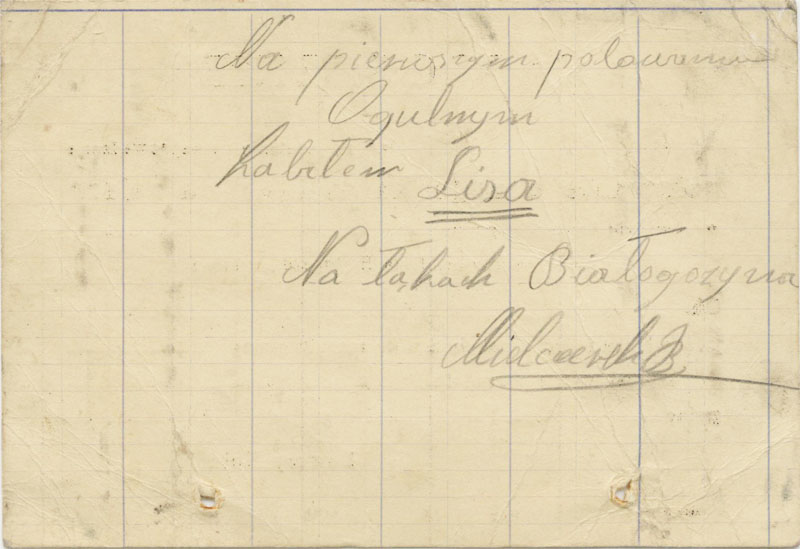 Na pierwszym polowaniu
Ogulnym
Zabiłem Lisa
Na łąkach Białogórzyna
Mielczarek B